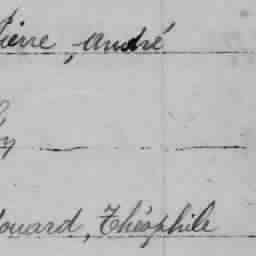 Pierre, André
y
douard, Théophile